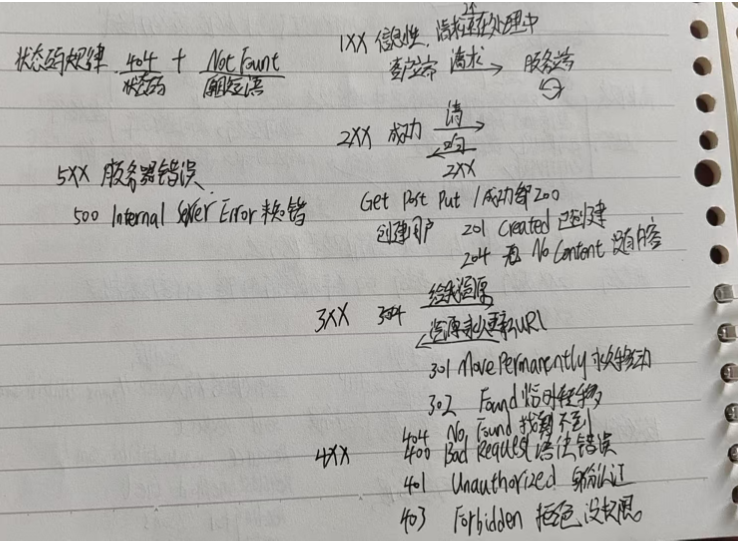 状态码规律 404 + Not Fount
状态码 原因短语
1XX 信息性, 请求正在处理中
客户端 请求 → 服务端
2XX 成功 请
2XX
5XX 服务器错误
500 Internal Server Error 未知错
Get Post Put / 成功都 200
创建用户 201 Created 已创建
204 No Content 没有内容
3XX 304 给我资源
资源永久更新URL
301 Move Permanently 永久移动
302 Found 临时转移
404 No Found 找不到
4XX 400 Bad Request 语法错误
401 Unauthorized 身份认证
403 Forbidden 拒绝 没权限。